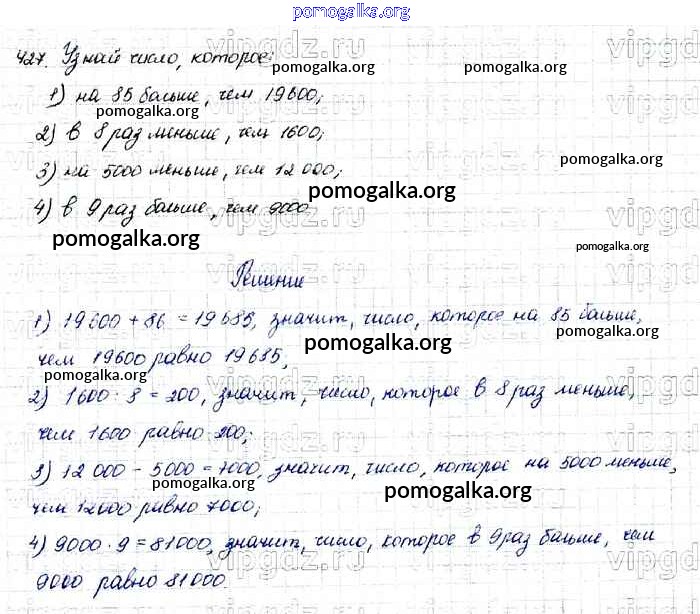 pomogalka.org
427. Узнай число, которое:
pomogalka.org
1) на 85 больше, чем 19600;
pomogalka.org
2) в 8 раз меньше, чем 1600;
pomogalka.org
3) на 5000 меньше, чем 12 000;
pomogalka.org
4) в 9 раз больше, чем 9000
pomogalka.org
pomogalka.org
Решение
1) 19600 + 86 = 19685, значит, число, которое на 85 больше,
pomogalka.org
pomogalka.org
чем 19600 равно 19685,
pomogalka.org
2) 1600 : 8 = 200, значит, число, которое в 8 раз меньше,
чем 1600 равно 200;
3) 12 000 - 5000 = 7000, значит, число, которое на 5000 меньше,
pomogalka.org
pomogalka.org
чем 12000 равно 7000;
4) 9000 · 9 = 81000, значит, число, которое в 9 раз больше, чем
pomogalka.org
9000 равно 81000.
vipgdz.ru